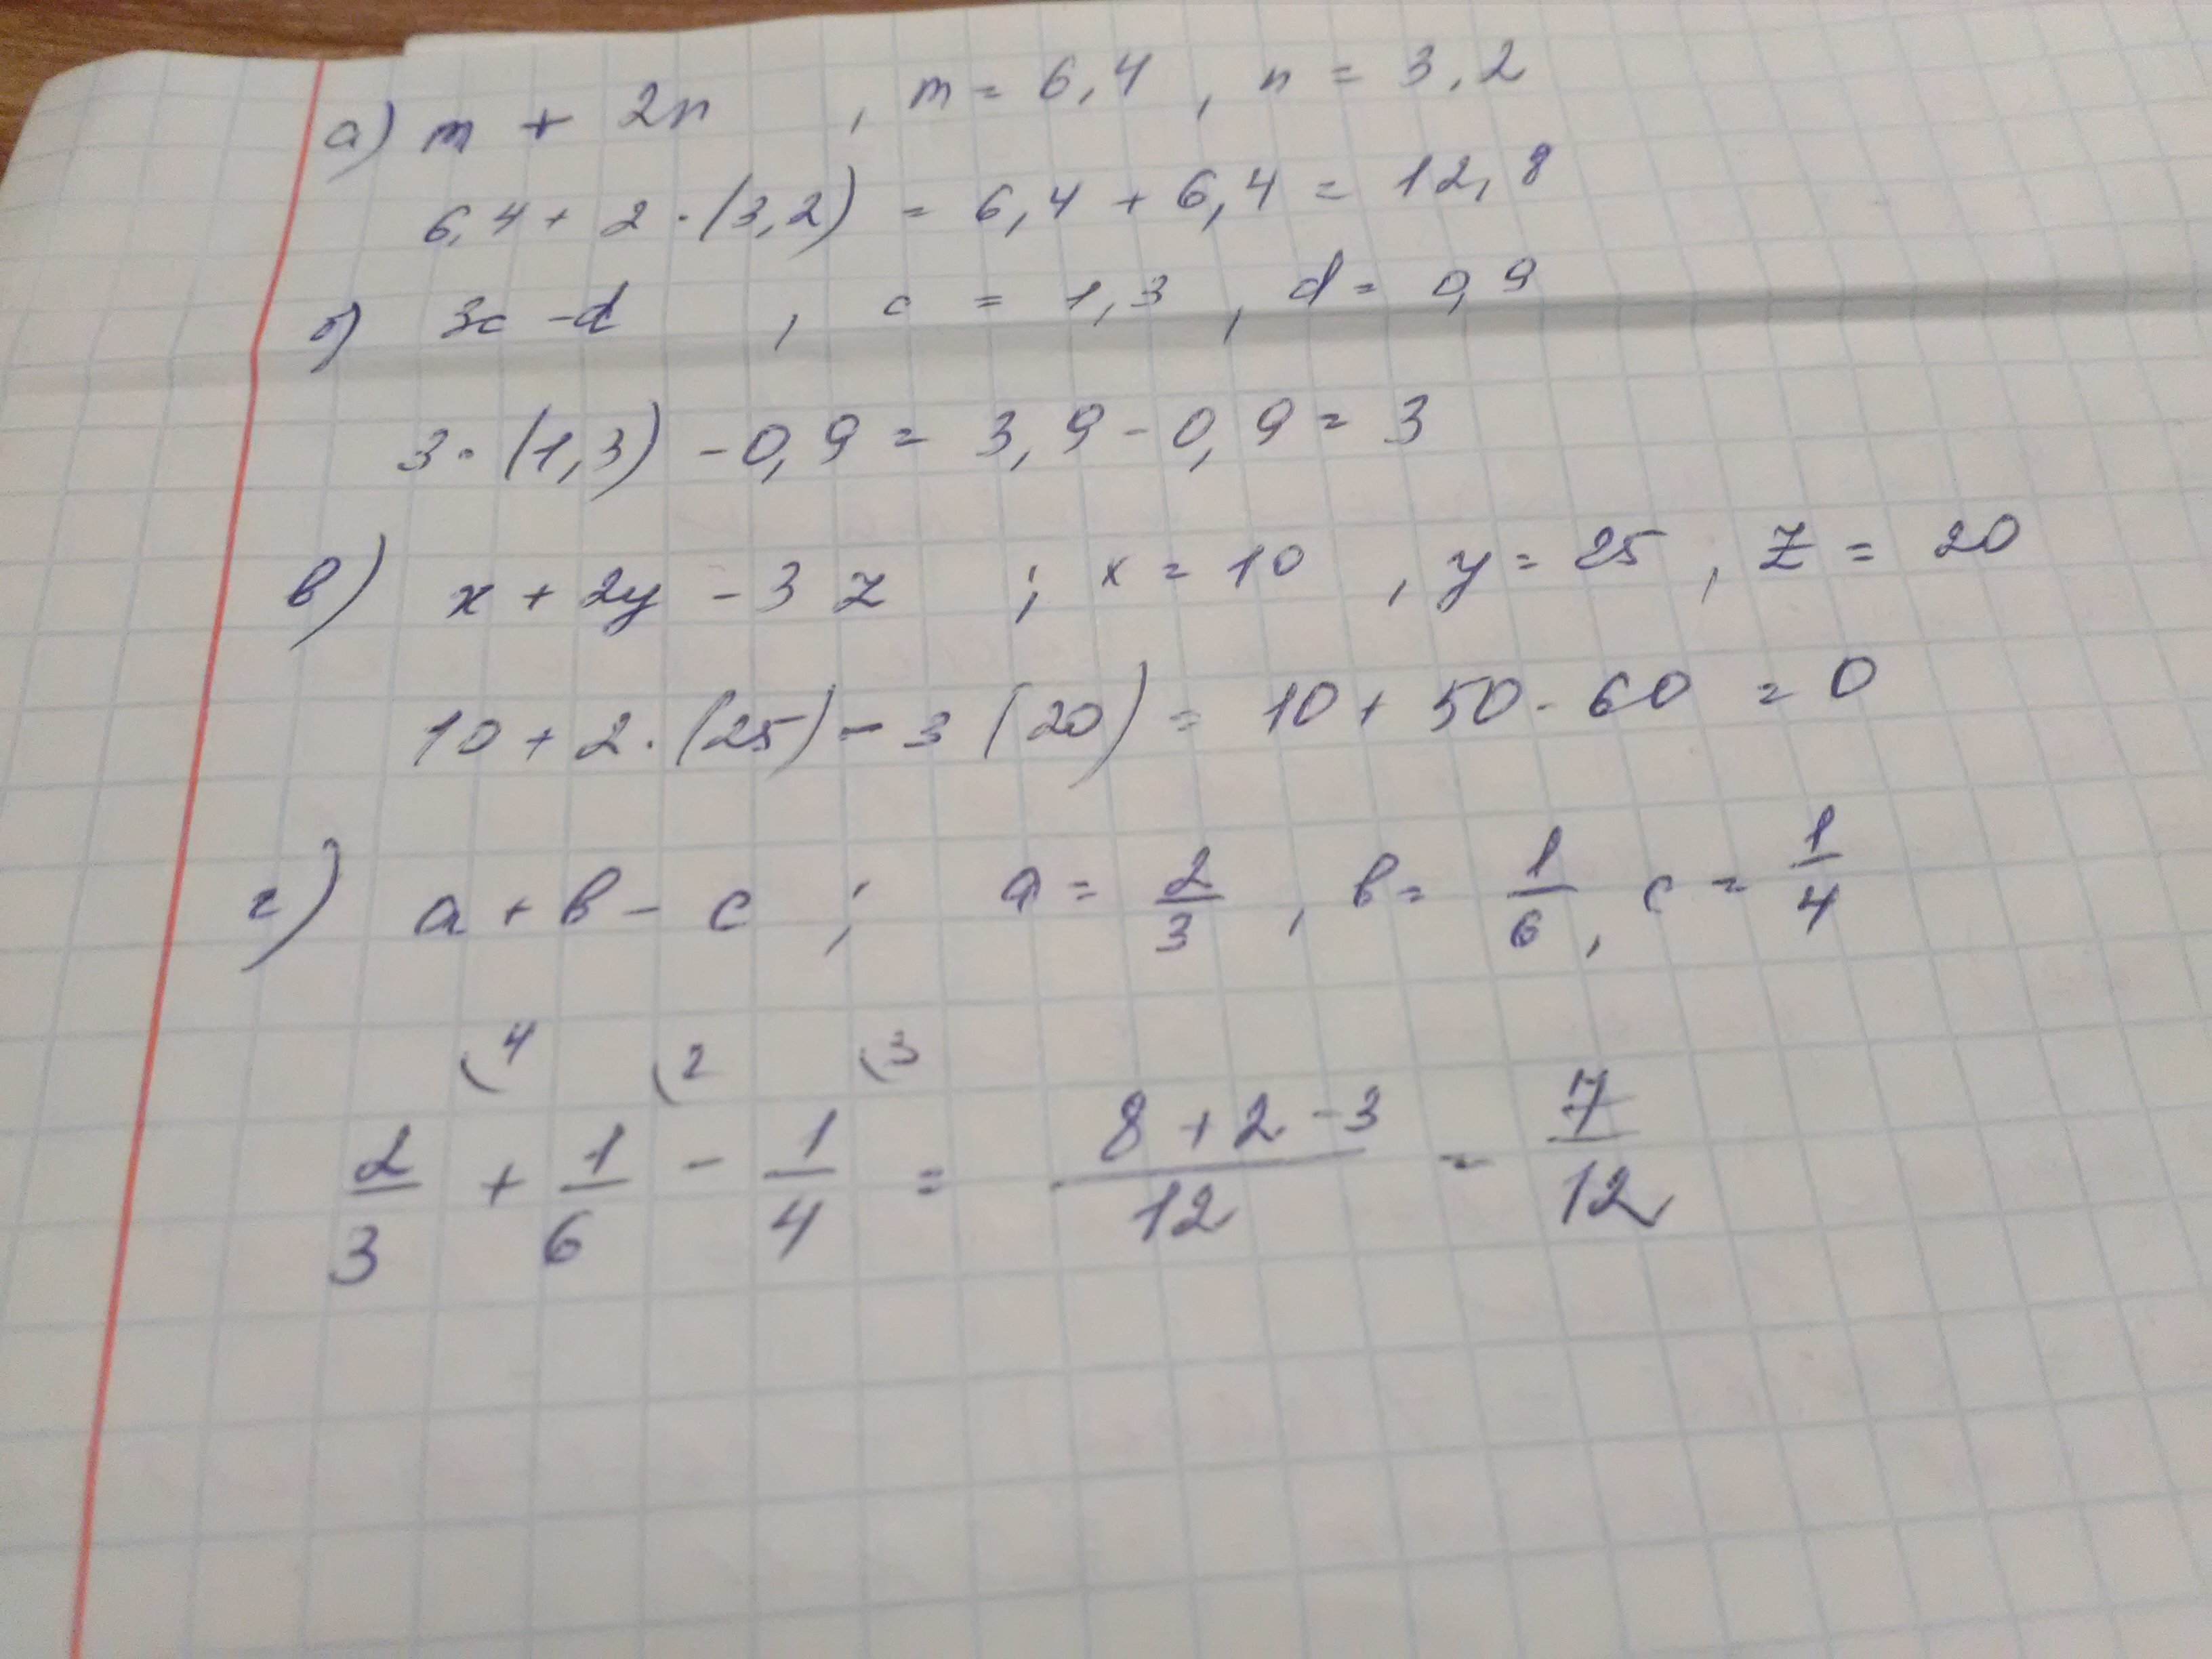 а) m + 2n , m = 6,4 , n = 3,2
6,4 + 2 · (3,2) = 6,4 + 6,4 = 12,8
б) 3c - d , c = 1,3 , d = 0,9
3 · (1,3) - 0,9 = 3,9 - 0,9 = 3
в) x + 2y - 3z ; x = 10 , y = 25 , z = 20
10 + 2 · (25) - 3 (20) = 10 + 50 - 60 = 0
г) a + b - c ; a = 2/3 , b = 1/6 , c = 1/4
4 2 3
2/3 + 1/6 - 1/4 = (8 + 2 - 3)/12 = 7/12